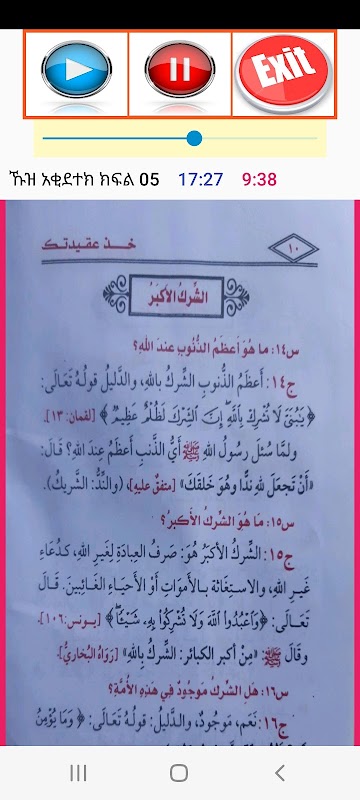 Exit
ኹዝ አቂደተክ ክፍል 05 17:27 9:38
خــذ عـقـيـدتـك ١٠
الشِّركُ الأكبَرُ
س١٤: ما هُوَ أعظَمُ الذُّنُوبِ عندَ اللهِ؟
ج١٤: أَعظَمُ الذُّنوبِ الشِّركُ باللهِ، والدَّليلُ قولُهُ تَعَالَى:
﴿يَٰبُنَىَّ لَا تُشْرِكْ بِٱللَّهِ إِنَّ ٱلشِّرْكَ لَظُلْمٌ عَظِيمٌ﴾ [لقمان: ١٣].
ولمَّا سُئلَ رسُولُ اللهِ ﷺ أَيُّ الذَّنبِ أعظَمُ عندَ اللهِ؟ قالَ:
«أَنْ تَجعَلَ للهِ نِدًّا وهُوَ خَلَقَكَ» [متفقٌ عليهِ]، (والنِّدُّ: الشَّريكُ).
س١٥: مَا هُوَ الشِّركُ الأكبرُ؟
ج١٥: الشِّركُ الأكبرُ هُوَ: صَرفُ العِبادَةِ لِغَيرِ اللهِ، كدُعَاءِ
غَيرِ اللهِ، والاستِغَاثَةِ بـالأموَاتِ أَوْ الأَحيَاءِ الغَائِبينَ. قَـالَ
تَعَـالَى: ﴿وَٱعْبُدُوا۟ ٱللَّهَ وَلَا تُشْرِكُوا۟ بِهِۦ شَيْـًٔا﴾ [يـونس: ١٠٦].
وقَالَ ﷺ: «مِنْ أكبرِ الكبائر: الشِّركُ بِاللهِ» [رَوَاهُ البُخَارِيُّ].
س١٦: هَلِ الشِّركُ مَوجُودٌ فِي هَذِهِ الأُمَّةِ؟
ج١٦: نَعَم، مَوجُودٌ، والدَّليلُ: قَولُهُ تَعَالَى: ﴿وَمَا يُؤْمِنُ